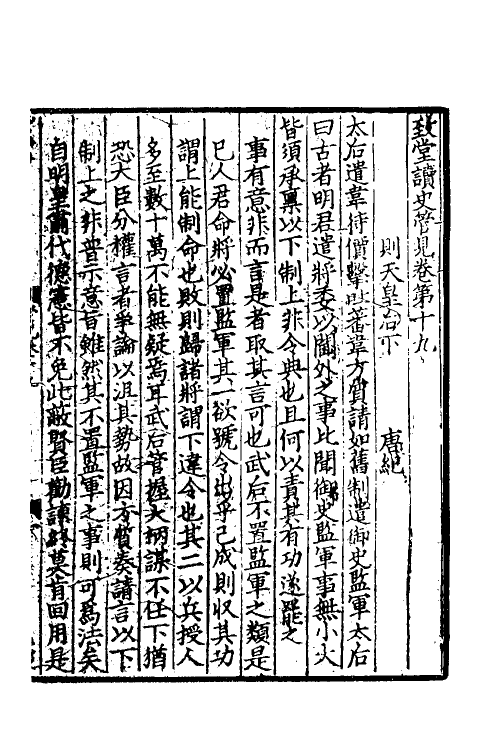 致堂讀史管見卷第十九
則天皇后下 唐紀
太后遣韋待價擊吐蕃韋方質請如舊制遣御史監軍太后
曰古者明君遣將委以閫外之事比聞御史監軍事無小大
皆須承稟以下制上非令典也且何以責其有功遂罷之
事有意非而言是者取其言可也武后不置監軍之類是
已人君命將必置監軍其一欲號令出乎己成則收其功
謂上能制命也敗則歸諸將謂下違令也其二以兵授人
多至數十萬不能無疑焉耳武后管握大柄謀不任下猶
恐大臣分權言者爭論以沮其勢故因方質奏請言以下
制上之非普示意旨雖然其不置監軍之事則可為法矣
自明皇肅代德憲皆不免此敝賢臣勸諫終莫肯回用是